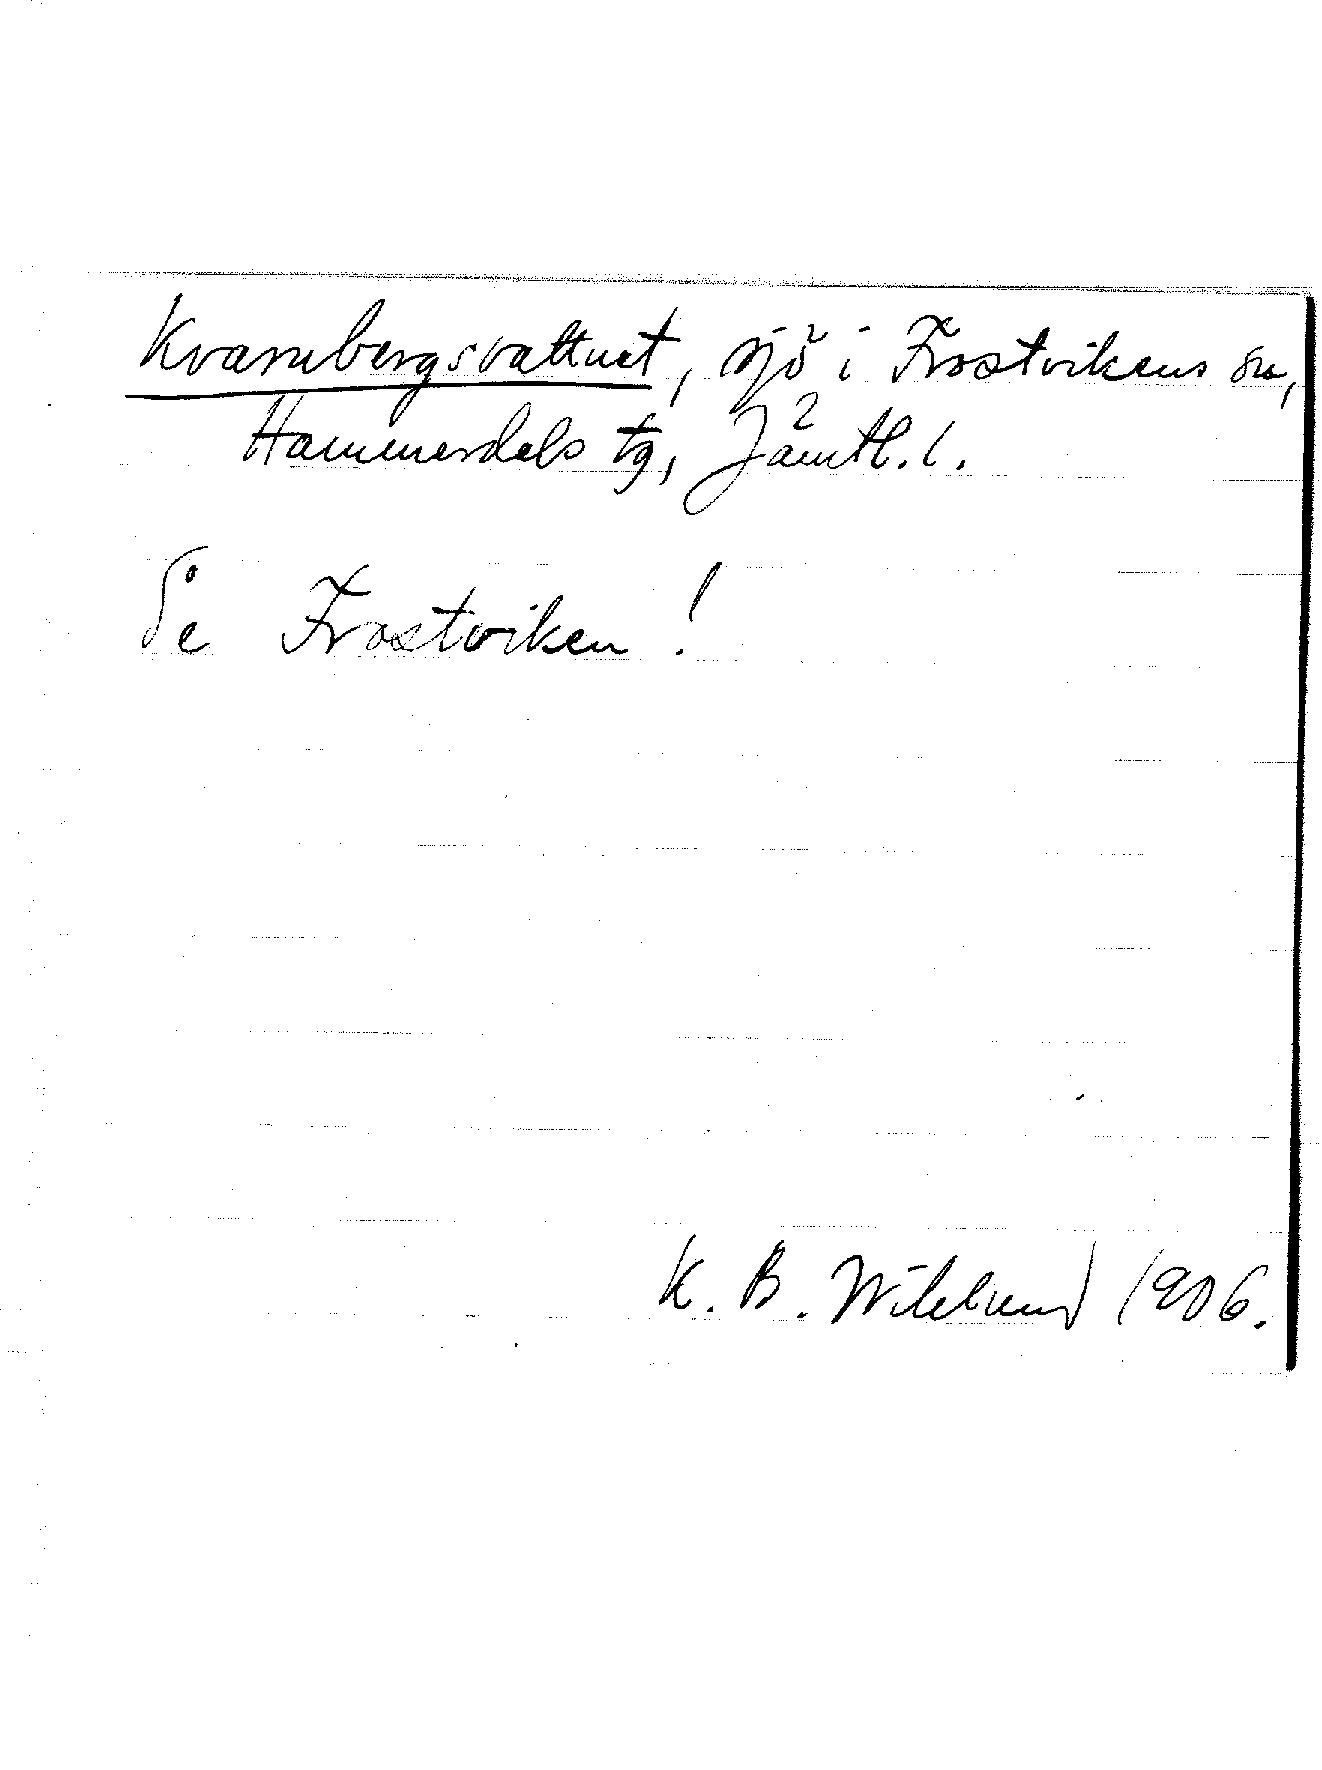 Kvarnbergsvattnet, sjö i Frostvikens sn,
Hammerdals tg, Jämtl. l.
Se Frostviken!
K. B. Wiklund 1906.